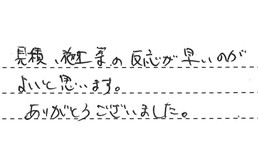 見積、施工等の反応が早いのが
よいと思います。
ありがとうございました。